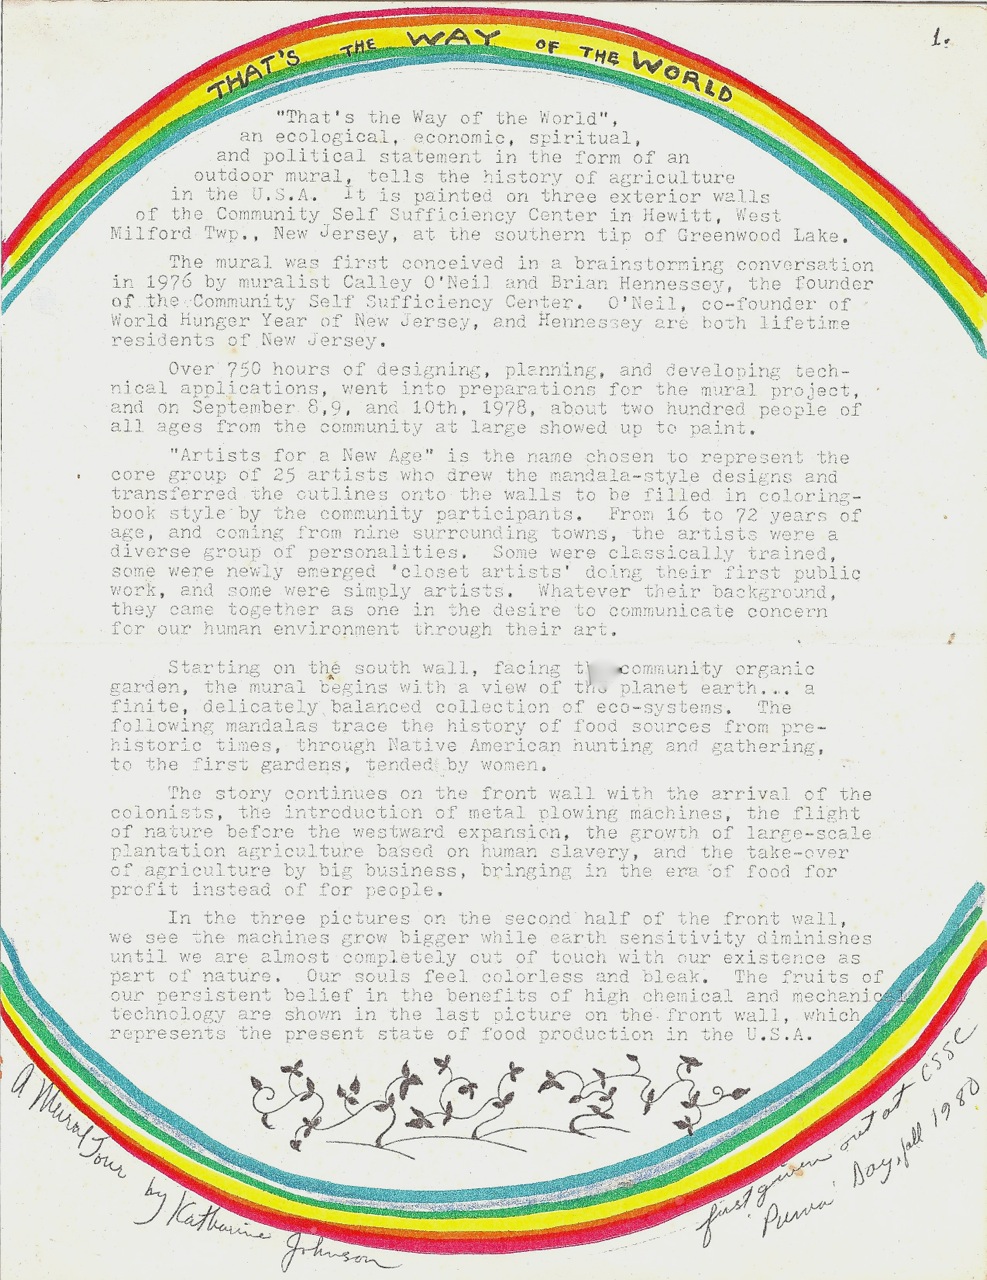 1.
THAT'S THE WAY OF THE WORLD
"That's the Way of the World",
an ecological, economic, spiritual,
and political statement in the form of an
outdoor mural, tells the history of agriculture
in the U.S.A. It is painted on three exterior walls
of the Community Self Sufficiency Center in Hewitt, West
Milford Twp., New Jersey, at the southern tip of Greenwood Lake.
The mural was first conceived in a brainstorming conversation
in 1976 by muralist Calley O'Neil and Brian Hennessey, the founder
of the Community Self Sufficiency Center. O'Neil, co-founder of
World Hunger Year of New Jersey, and Hennessey are both lifetime
residents of New Jersey.
Over 750 hours of designing, planning, and developing tech-
nical applications, went into preparations for the mural project,
and on September 8,9, and 10th, 1978, about two hundred people of
all ages from the community at large showed up to paint.
"Artists for a New Age" is the name chosen to represent the
core group of 25 artists who drew the mandala-style designs and
transferred the outlines onto the walls to be filled in coloring-
book style by the community participants. From 16 to 72 years of
age, and coming from nine surrounding towns, the artists were a
diverse group of personalities. Some were classically trained,
some were newly emerged 'closet artists' doing their first public
work, and some were simply artists. Whatever their background,
they came together as one in the desire to communicate concern
for our human environment through their art.
Starting on the south wall, facing community organic
garden, the mural begins with a view of the planet earth... a
finite, delicately balanced collection of eco-systems. The
following mandalas trace the history of food sources from pre-
historic times, through Native American hunting and gathering,
to the first gardens, tended by women.
The story continues on the front wall with the arrival of the
colonists, the introduction of metal plowing machines, the flight
of nature before the westward expansion, the growth of large-scale
plantation agriculture based on human slavery, and the take-over
of agriculture by big business, bringing in the era of food for
profit instead of for people.
In the three pictures on the second half of the front wall,
we see the machines grow bigger while earth sensitivity diminishes
until we are almost completely out of touch with our existence as
part of nature. Our souls feel colorless and bleak. The fruits of
our persistent belief in the benefits of high chemical and mechanical
technology are shown in the last picture on the front wall, which
represents the present state of food production in the U.S.A.
A Mural Tour by Katharine Johnson
first given out at CSSC
Day, fall 1980